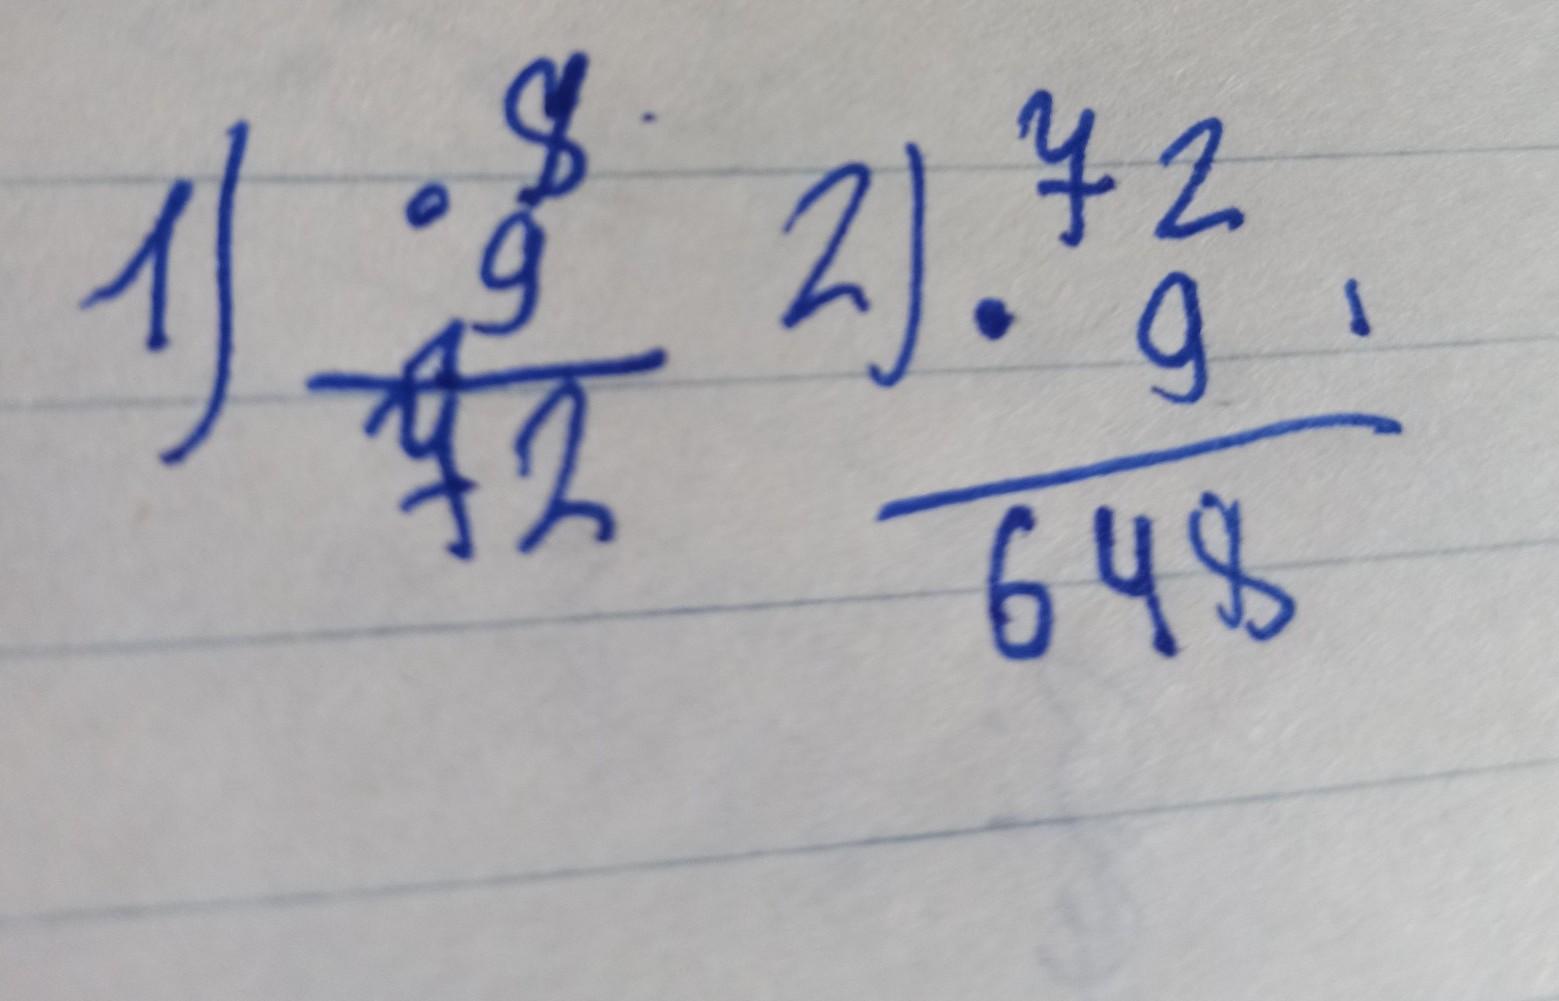 1) 8
· 9
72
2) 72
· 9
648